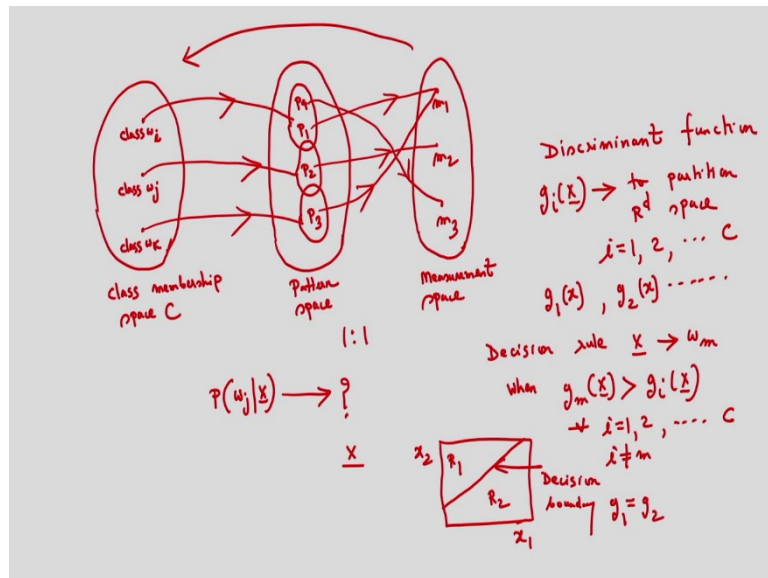 class ωi
class ωj
class ωk
class membership
space C
P4
P1
P2
P3
Pattern
space
1:1
m1
m2
m3
Measurement
space
P(ωj|x) → ?
x
Discriminant function
gi(x) → to partition
R^d space
i=1, 2, ... C
g1(x) , g2(x) ......
Decision rule x → ωm
when gm(x) > gi(x)
∀ i=1, 2, .... C
i≠m
x2
R1
R2
x1
Decision
boundary g1 = g2